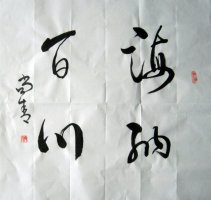 海纳
百川
尚青